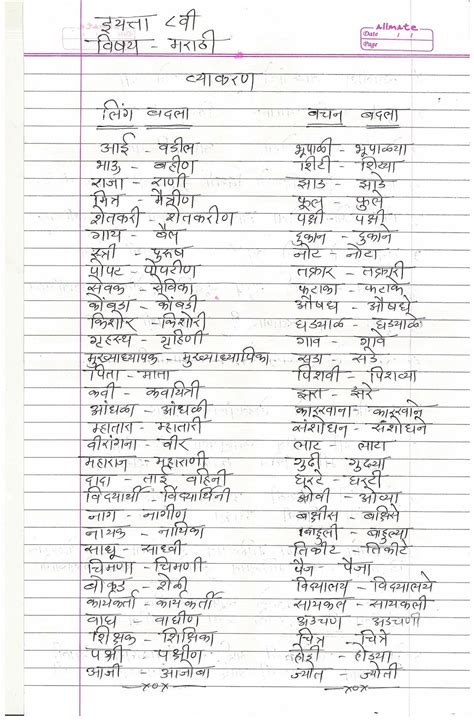 इयत्ता ८वी
विषय - मराठी
Allmate
Date / /
Page
व्याकरण
लिंग बदला वचन बदला
आई - वडील भूपाळी - भूपाळ्या
भाऊ - बहीण शिटी - शिट्या
राजा - राणी झाड - झाडे
मित्र - मैत्रीण फूल - फुले
शेतकरी - शेतकरीण पक्षी - पक्षी
गाय - बैल दुकान - दुकाने
स्त्री - पुरुष नोट - नोटा
पोपट - पोपटीण तक्रार - तक्रारी
सेवक - सेविका फटाका - फटाके
कोंबडा - कोंबडी औषध - औषधे
किशोर - किशोरी घड्याळ - घड्याळे
गृहस्थ - गृहिणी गाव - गावे
मुख्याध्यापक - मुख्याध्यापिका खडा - खडे
पिता - माता पिशवी - पिशव्या
कवी - कवयित्री झरा - झरे
आंधळा - आंधळी कारखाना - कारखाने
म्हातारा - म्हातारी संशोधन - संशोधने
वीरांगना - वीर लाट - लाटा
महाराज - महाराणी गुढी - गुढ्या
दादा - ताई वहिनी घरटे - घरटी
विद्यार्थी - विद्यार्थिनी ओवी - ओव्या
नाग - नागीण बक्षीस - बक्षिसे
नायक - नायिका बाहुली - बाहुल्या
साधू - साध्वी तिकीट - तिकीटे
चिमणा - चिमणी पैज - पैजा
बोकड - शेळी विद्यालय - विद्यालये
कार्यकर्ता - कार्यकर्ती सायकल - सायकली
वाघ - वाघीण अडचण - अडचणी
शिक्षक - शिक्षिका चित्र - चित्रे
पक्षी - पक्षीण होडी - होड्या
आजी - आजोबा ज्योत - ज्योती